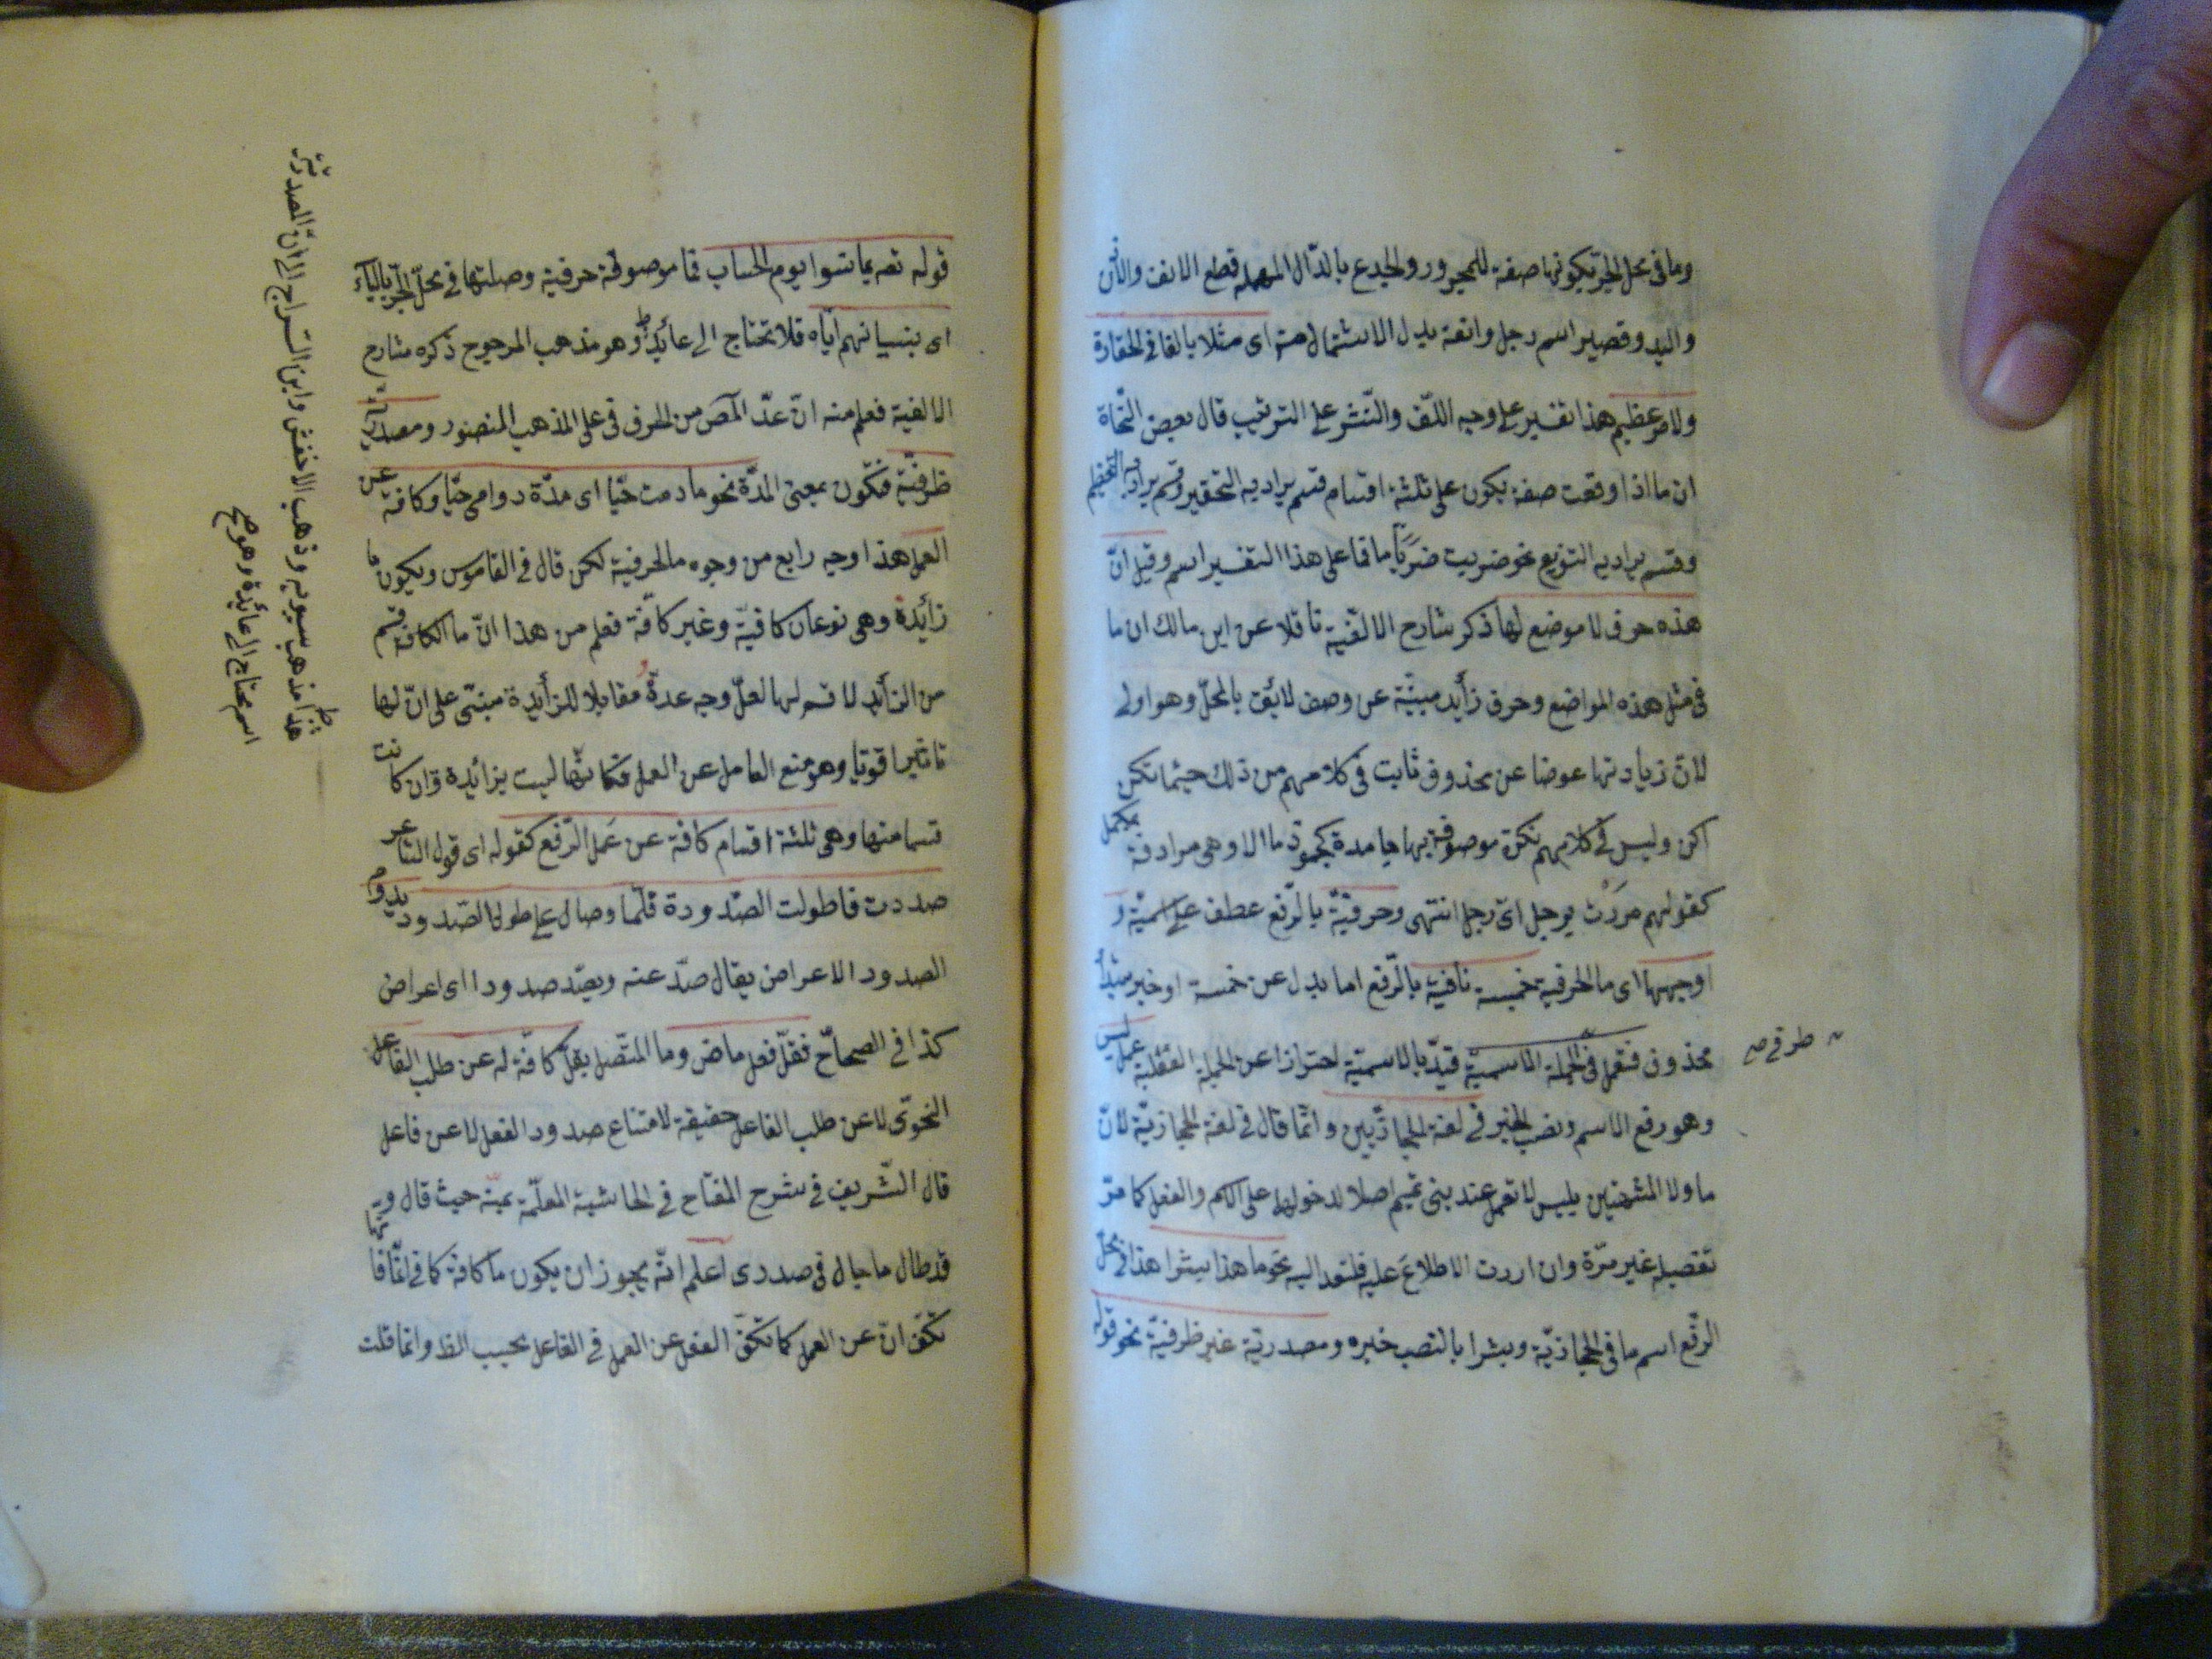 وما في محل الجر بكونها صفة للمجرور والجدع بالدال المهملة قطع الانف والاذن
واليد وقصير اسم رجل وانفه بدل الاشتمال منه اى مثلا بالغا فى الحقارة
ولامر عظيم هذا تفسير على وجه اللف والنشر على الترتيب قال بعض النحاة
ان ما اذا وقعت صفة يكون على ثلثة اقسام قسم يراد به التحقير وقسم يراد به التعظيم
وقسم يراد به التنويع نحو ضربت ضربا ما فما على هذا التفسير اسم وقيل ان
هذه حرف لا موضع لها ذكر شارح الالفية ناقلا عن ابن مالك ان ما
فى مثل هذه المواضع وحرف زائد مبينة عن وصف لائق بالمحل وهو اولى
لان زيادتها عوضا عن محذوف ثابت فى كلامهم من ذلك حيثما تكن
اكن وليس فى كلامهم نكرة موصوفة بها جامدة كجمود ما الا وهى مرادفة
كقولهم مررت برجل اى رجل انتهى وحرفية بالرفع عطف على اسمية و
اوجهها اى ما الحرفية خمسة نافية بالرفع اما بدل عن خمسة او خبر مبتدأ
محذوف فتعمل فى الجملة الاسمية قيد بالاسمية احترازا عن الجملة الفعلية عمل ليس
وهو رفع الاسم ونصب الخبر فى لغة الحجازيين وانما قال فى لغة الحجازية لان
ما ولا المشبهتين بليس لا تعمل عند بنى تميم اصلا لدخولها على الاسم والفعل كما مر
تفصيله غير مرة وان اردت الاطلاع عليه فلتعد اليه نحو ما هذا بشرا هذا فى محل
الرفع اسم ما فى الحجازية وبشرا بالنصب خبره ومصدرية غير ظرفية نحو قوله
قوله تعه بما نسوا يوم الحساب فما موصوفة حرفية وصلتها فى محل الجر بالباء
اى بنسيانهم اياه فلا تحتاج الى عائد وهو مذهب المرجوح ذكره شارح
الالفية فعلم منه ان عد المص من الحرف فى على المذهب المنصور ومصدرية
ظرفية فتكون بمعنى المدة نحو ما دمت حيا اى مدة دوامى حيا وكافة عن
العمل هذا وجه رابع من وجوه ما الحرفية لكن قال فى القاموس ويكون ما
زائدة وهى نوعان كافية وغير كافة فعلم من هذا ان ما الكافة قسم
من الزائد لا قسم لها لعل وجه عدة مقابلا للزائدة مبنى على ان لها
تاثيرا قويا وهو منع العامل عن العمل فكانها ليست بزائدة وان كانت
قسما منها وهى ثلثة اقسام كافة عن عمل الرفع كقوله اى قول الشاعر
صددت فاطولت الصدود قلما وصال على طول الصدود يدوم
الصدود الاعراض يقال صد عنه ويصد صدودا اى اعراض
كذا فى الصحاح فقل فعل ماض وما المتصل بقل كافة له عن طلب الفاعل
النحوى لا عن طلب الفاعل حقيقة لامتناع صدور الفعل لا عن فاعل
قال الشريف فى شرح المفتاح فى الحاشية المعلمة بمنه حيث قال
قد طال ما جال فى صدرى اعلم انه يجوز ان يكون ما كافة كما فى انما فانها
تكف ان عن العمل كما تكف الفعل عن العمل فى الفاعل بحسب الظ وانما قلت
هذا مذهب سيبويه وذهب الاخفش وابن السراج الى ان المصدرية
اسم محتاج الى عائدة وهو